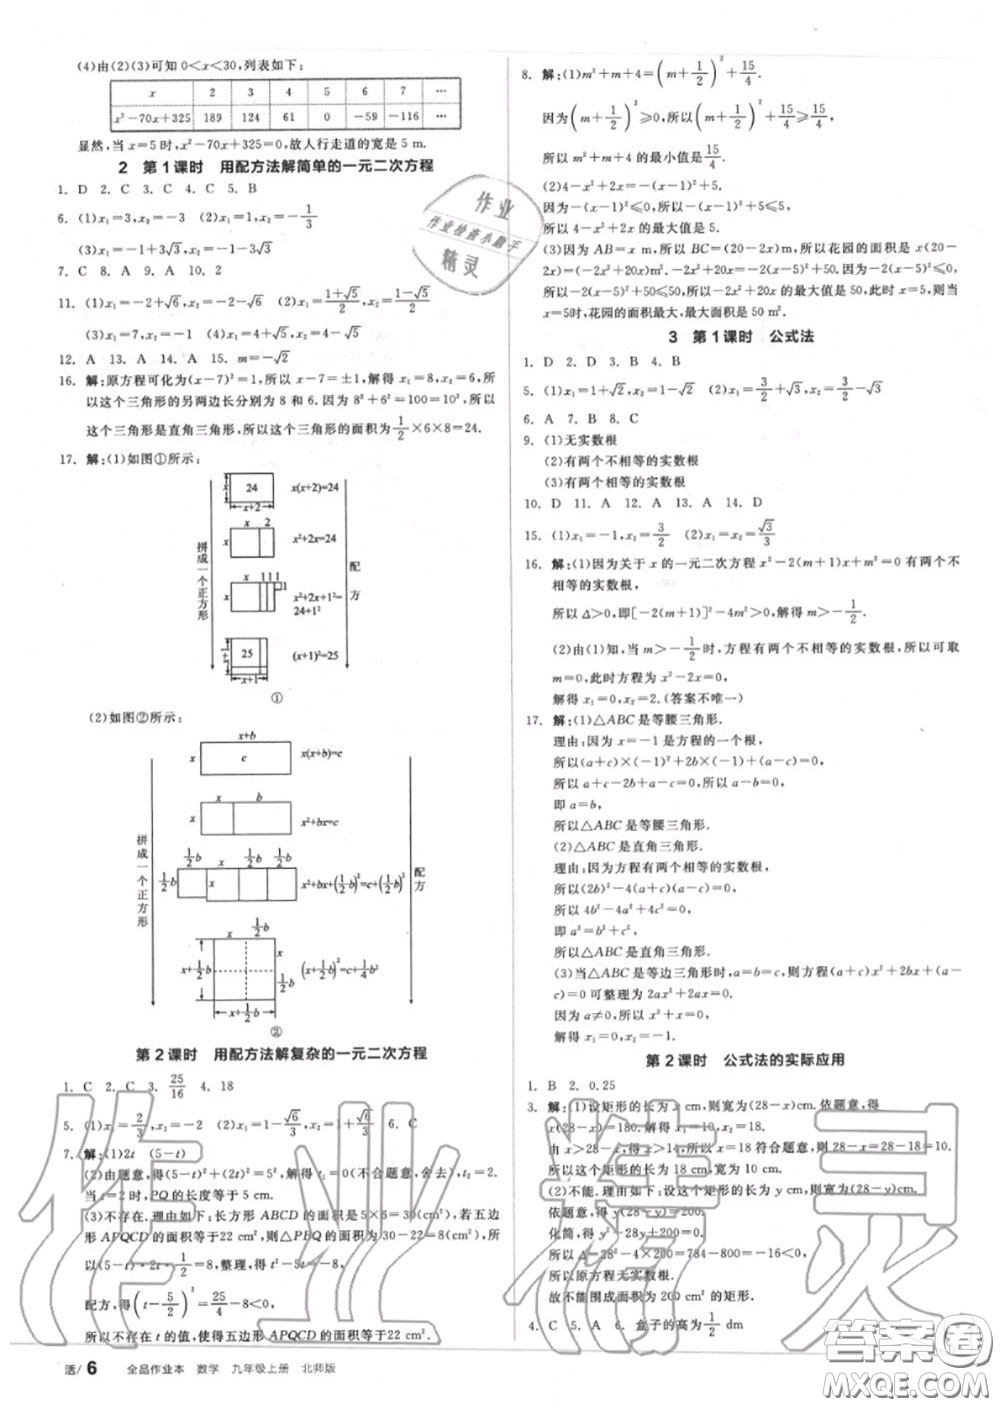 (4)由(2)(3)可知 0<x<30,列表如下:
x 2 3 4 5 6 7 …
x²-70x+325 189 124 61 0 -59 -116 …
显然,当 x=5时,x²-70x+325=0,故人行走道的宽是5 m.
2 第1课时 用配方法解简单的一元二次方程
1. D 2. C 3. C 4. C 5. B
6. (1)x₁=3,x₂=-3 (2)x₁=1,x₂=-1/3
(3)x₁=-1+3√3,x₂=-1-3√3
7. C 8. A 9. A 10. 2
11. (1)x₁=-2+√6,x₂=-2-√6 (2)x₁=(1+√5)/2,x₂=(1-√5)/2
(3)x₁=7,x₂=-1 (4)x₁=9,x₂=1
12. A 13. A 14. A 15. m=-√2
16. 解:原方程可化为(x-7)²=1,所以 x-7=±1,解得 x₁=8,x₂=6,所
以这个三角形的另两边长分别为 8 和 6.因为 8²+6²=100=10²,所以
这个三角形是直角三角形,所以这个三角形的面积为1/2×6×8=24.
17. 解:(1)如图①所示:
拼成一个正方形
x 24 x+2 x(x+2)=24
x 2 x x²+2x=24
x 111 1 x x²+2x+1²=24+1²
x+1 25 x+1 (x+1)²=25
配方
①
(2)如图②所示:
拼成一个正方形
x+b x c x(x+b)=c
x b x x²+bx=c
1/2b x 1/2b 1/2b x x²+bx+(1/2b)²=c+(1/2b)²
x 1/2b x+1/2b x 1/2b x+1/2b (x+1/2b)²=c+1/4b²
配方
②
第2课时 用配方法解复杂的一元二次方程
1. C 2. C 3. 25/16 4. 18
5. (1)x₁=2/3,x₂=-2 (2)x₁=1-√6/3,x₂=1+√6/3 6. C
7. 解:(1)2t (5-t)
(2)由题意,得(5-t)²+(2t)²=5²,解得 t₁=0(不合题意,舍去),t₂=2.
当 t=2 时,PQ 的长度等于 5 cm.
(3)不存在.理由如下:长方形 ABCD 的面积是5×6=30(cm²),若五边
形 APQCD 的面积等于22 cm²,则△PBQ 的面积为 30-22=8(cm²),所
以(5-t)·2t·1/2=8,整理,得 t²-5t=-8,
配方,得(t-5/2)²=25/4-8<0,
所以不存在 t 的值,使得五边形 APQCD 的面积等于22 cm².
8. 解:(1)m²+m+4=(m+1/2)²+15/4.
因为(m+1/2)²≥0,所以(m+1/2)²+15/4≥15/4,
所以 m²+m+4 的最小值是15/4.
(2)4-x²+2x=-(x-1)²+5.
因为-(x-1)²≤0,所以-(x-1)²+5≤5,
所以4-x²+2x 的最大值是 5.
(3)因为 AB=x m,所以 BC=(20-2x)m,所以花园的面积是 x(20-
2x)=-2x²+20x=-2(x-5)²+50.因为-2(x-5)²≤0,
所以-2(x-5)²+50≤50,所以-2x²+20x 的最大值是50,此时 x=5,则当
x=5时,花园的面积最大,最大面积是 50 m².
3 第1课时 公式法
1. D 2. D 3. B 4. B
5. (1)x₁=1+√2,x₂=1-√2 (2)x₁=3/2+√3,x₂=3/2-√3
6. A 7. B 8. C
9. (1)无实数根
(2)有两个不相等的实数根
(3)有两个不相等的实数根
10. D 11. A 12. A 13. A 14. D
15. (1)x₁=-1,x₂=3/2 (2)x₁=x₂=√3/3
16. 解:(1)因为关于 x 的一元二次方程 x²-2(m+1)x+m²=0 有两个不
相等的实数根,
所以 Δ>0,即[-2(m+1)]²-4m²>0,解得 m>-1/2.
(2)由(1)知,当 m>-1/2时,方程有两个不相等的实数根,所以可取
m=0,此时方程为 x²-2x=0,
解得 x₁=0,x₂=2.(答案不唯一)
17. 解:(1)△ABC 是等腰三角形.
理由:因为 x=-1 是方程的一个根,
所以(a+c)×(-1)²+2b×(-1)+(a-c)=0,
所以 a+c-2b+a-c=0,所以 a-b=0,
即 a=b,
所以△ABC 是等腰三角形.
(2)△ABC 是直角三角形.
理由:因为方程有两个相等的实数根,
所以(2b)²-4(a+c)(a-c)=0,
所以 4b²-4a²+4c²=0,
即 a²=b²+c²,
所以△ABC 是直角三角形.
(3)当△ABC 是等边三角形时,a=b=c,则方程(a+c)x²+2bx+(a-
c)=0 可整理为 2ax²+2ax=0.
因为 a≠0,所以 x²+x=0,
解得 x₁=0,x₂=-1.
第2课时 公式法的实际应用
1. B 2. 0.25
3. 解:(1)设矩形的长为 x cm,则宽为(28-x)cm.依题意,得
x(28-x)=180.解得 x₁=10,x₂=18.
由 x>28-x,得 x>14,所以 x=18 符合题意,所以 28-x=28-18=10.
所以这个矩形的长为 18 cm,宽为 10 cm.
(2)不能.理由如下:设这个矩形的长为 y cm,则宽为(28-y)cm.
依题意,得 y(28-y)=200,
化简,得 y²-28y+200=0,
所以 Δ=28²-4×200=784-800=-16<0,
所以原方程无实数根.
故不能围成面积为200 cm²的矩形.
4. C 5. A 6. 盒子的高为1/2 dm
活/ 6 全品作业本 数学 九年级上册 北师版
作业
作业检查小助手
精灵
作业精灵
答案圈
MXQE.COM